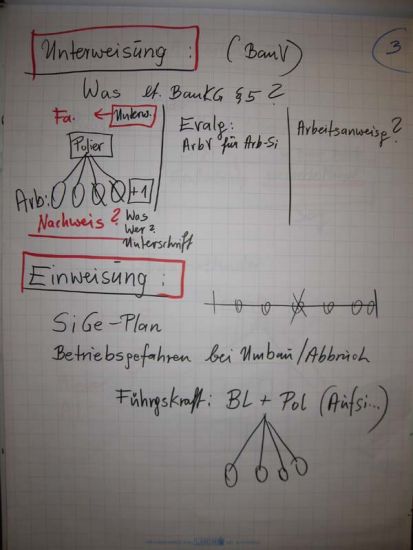 Unterweisung : (BauV) 3
Was lt. BauKG § 5 ?
Fa. ← Unterw.
Polier
Arb: +1
Nachweis ? Was
Wer ?
Unterschrift
Evalg:
ArbV für Arb-Si
Arbeitsanweisg ?
Einweisung :
SiGe-Plan
Betriebsgefahren bei Umbau/Abbruch
Führgskraft: BL + Pol (Aufsi...)